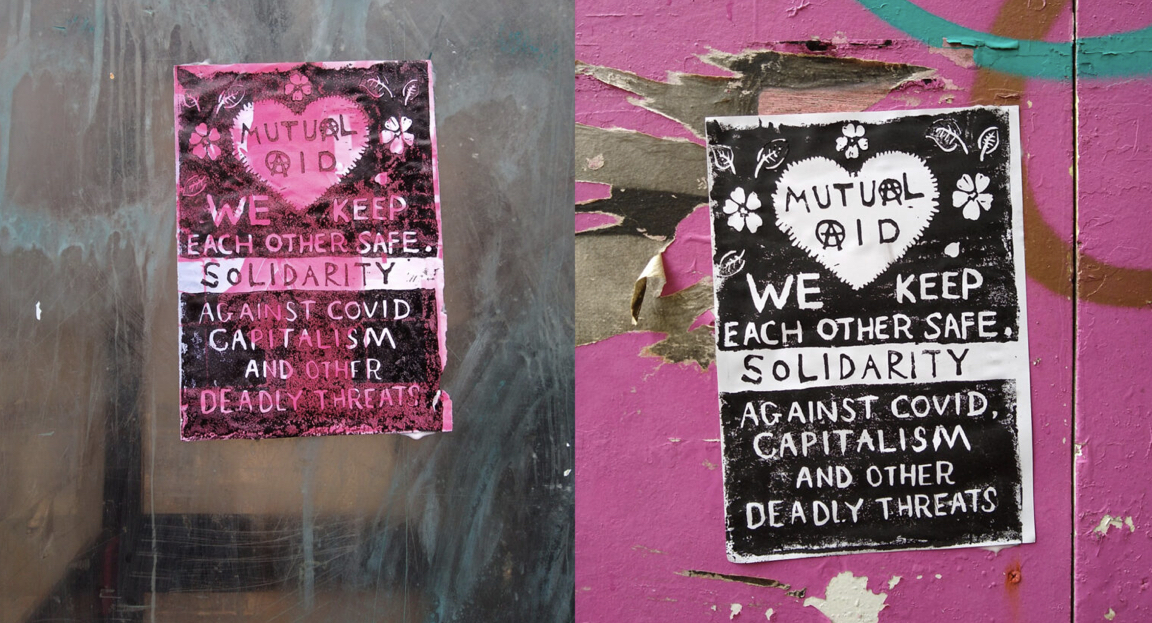 MUTUAL
AID
WE KEEP
EACH OTHER SAFE.
SOLIDARITY
AGAINST COVID
CAPITALISM
AND OTHER
DEADLY THREATS
MUTUAL
AID
WE KEEP
EACH OTHER SAFE.
SOLIDARITY
AGAINST COVID,
CAPITALISM
AND OTHER
DEADLY THREATS